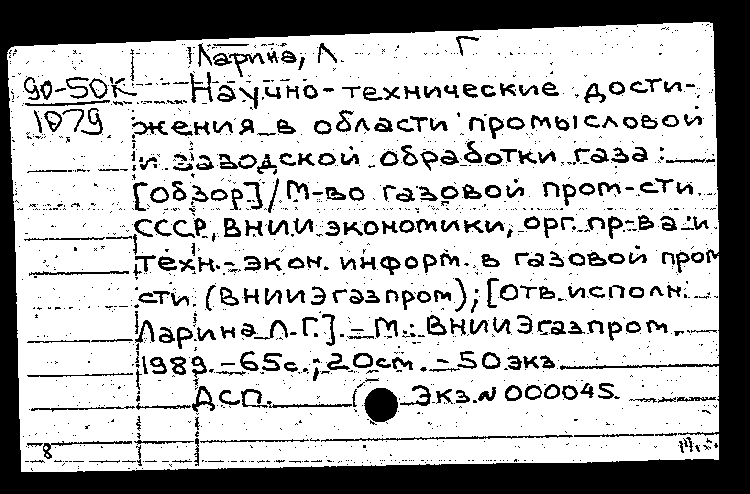 Ларина, Л. Г
90-50К
1079
Научно-технические дости-
жения в области промысловой
и заводской обработки газа:
[Обзор] / М-во газовой пром-сти
СССР, ВНИИ экономики, орг. пр-ва и
техн.-экон. информ. в газовой пром
сти (ВНИИЭгазпром); [Отв. исполн.
Ларина Л.Г.]. - М.: ВНИИЭгазпром,
1989. - 65с.; 20см. - 50 экз.
ДСП. Экз.N 000045.
8